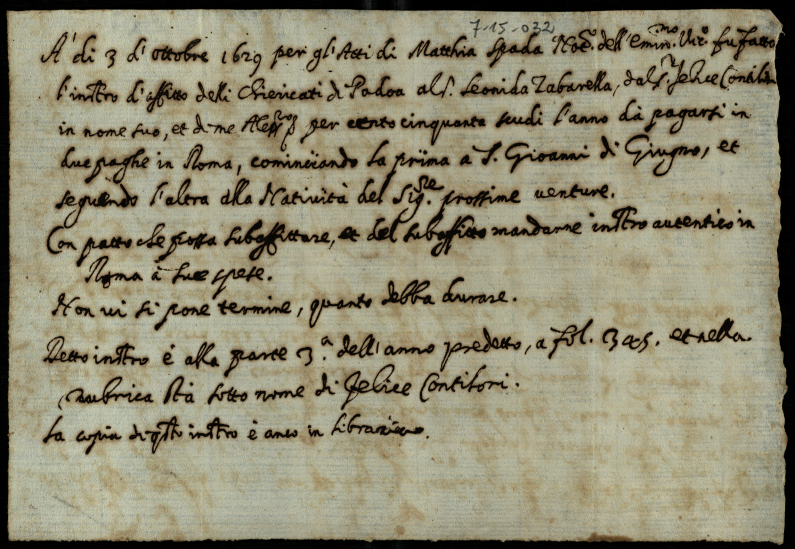 7-15-032
A' di 3 d'ottobre 1629 per gl'Atti di Matthia Spada Not.º dell'Emin.mo Vic.º fu fatto
l'instro d'affitto delli Chiericati di Padoa al S. Leonida Zabarella, dal S.r Felice Contilori
in nome suo, et di me per cento cinquanta scudi l'anno da pagarsi in
due paghe in Roma, cominciando la prima a S. Gioanni di Giugno, et
seguendo l'altra alla Natività del Sig.re prossime venture.
Con patto che possa subaffittare, et del subaffitto mandarne instro autentico in
Roma à sue spese.
Non vi si pone termine, quanto debba durare.
Detto instro é alla parte 3.a dell'anno predetto, a fol. 345. et nella
rubrica stà sotto nome di Felice Contilori.
La copia di qsto instro è anco in